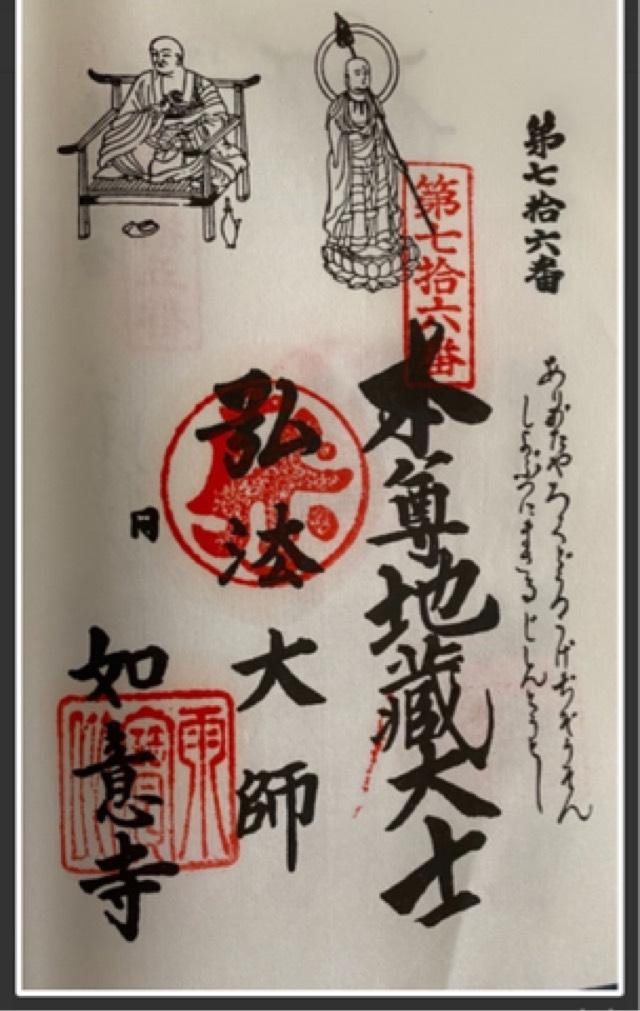 第七拾六番
ありがたやろくどうのうげぢぞうそん
しよぶつにまさるじしんとうとし
第七拾六番
本尊地蔵大士
弘法大師
如意寺